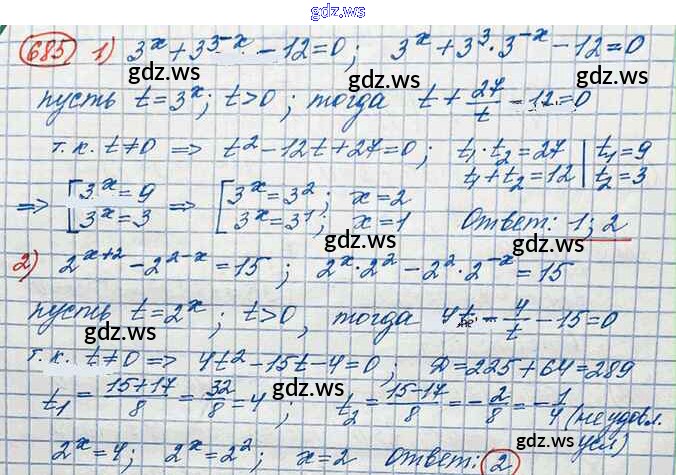 gdz.ws
685 1) 3^x + 3^{3-x} - 12 = 0; 3^x + 3^3 · 3^{-x} - 12 = 0
gdz.ws gdz.ws
пусть t = 3^x; t > 0; тогда t + 27/t - 12 = 0
т.к. t ≠ 0 => t^2 - 12t + 27 = 0; t_1 · t_2 = 27 | t_1 = 9
t_1 + t_2 = 12 | t_2 = 3
gdz.ws gdz.ws
=> [3^x = 9 => [3^x = 3^2; x = 2
[3^x = 3 [3^x = 3^1; x = 1 Ответ: 1; 2
gdz.ws gdz.ws
2) 2^{x+2} - 2^{2-x} = 15; 2^x · 2^2 - 2^2 · 2^{-x} = 15
пусть t = 2^x; t > 0, тогда 4t - 4/t - 15 = 0
gdz.ws gdz.ws
т.к. t ≠ 0 => 4t^2 - 15t - 4 = 0; D = 225 + 64 = 289
t_1 = (15+17)/8 = 32/8 = 4; t_2 = (15-17)/8 = -2/8 = -1/4 (не удовл.
усл)
gdz.ws gdz.ws
2^x = 4; 2^x = 2^2; x = 2 Ответ: 2
gdz.ws